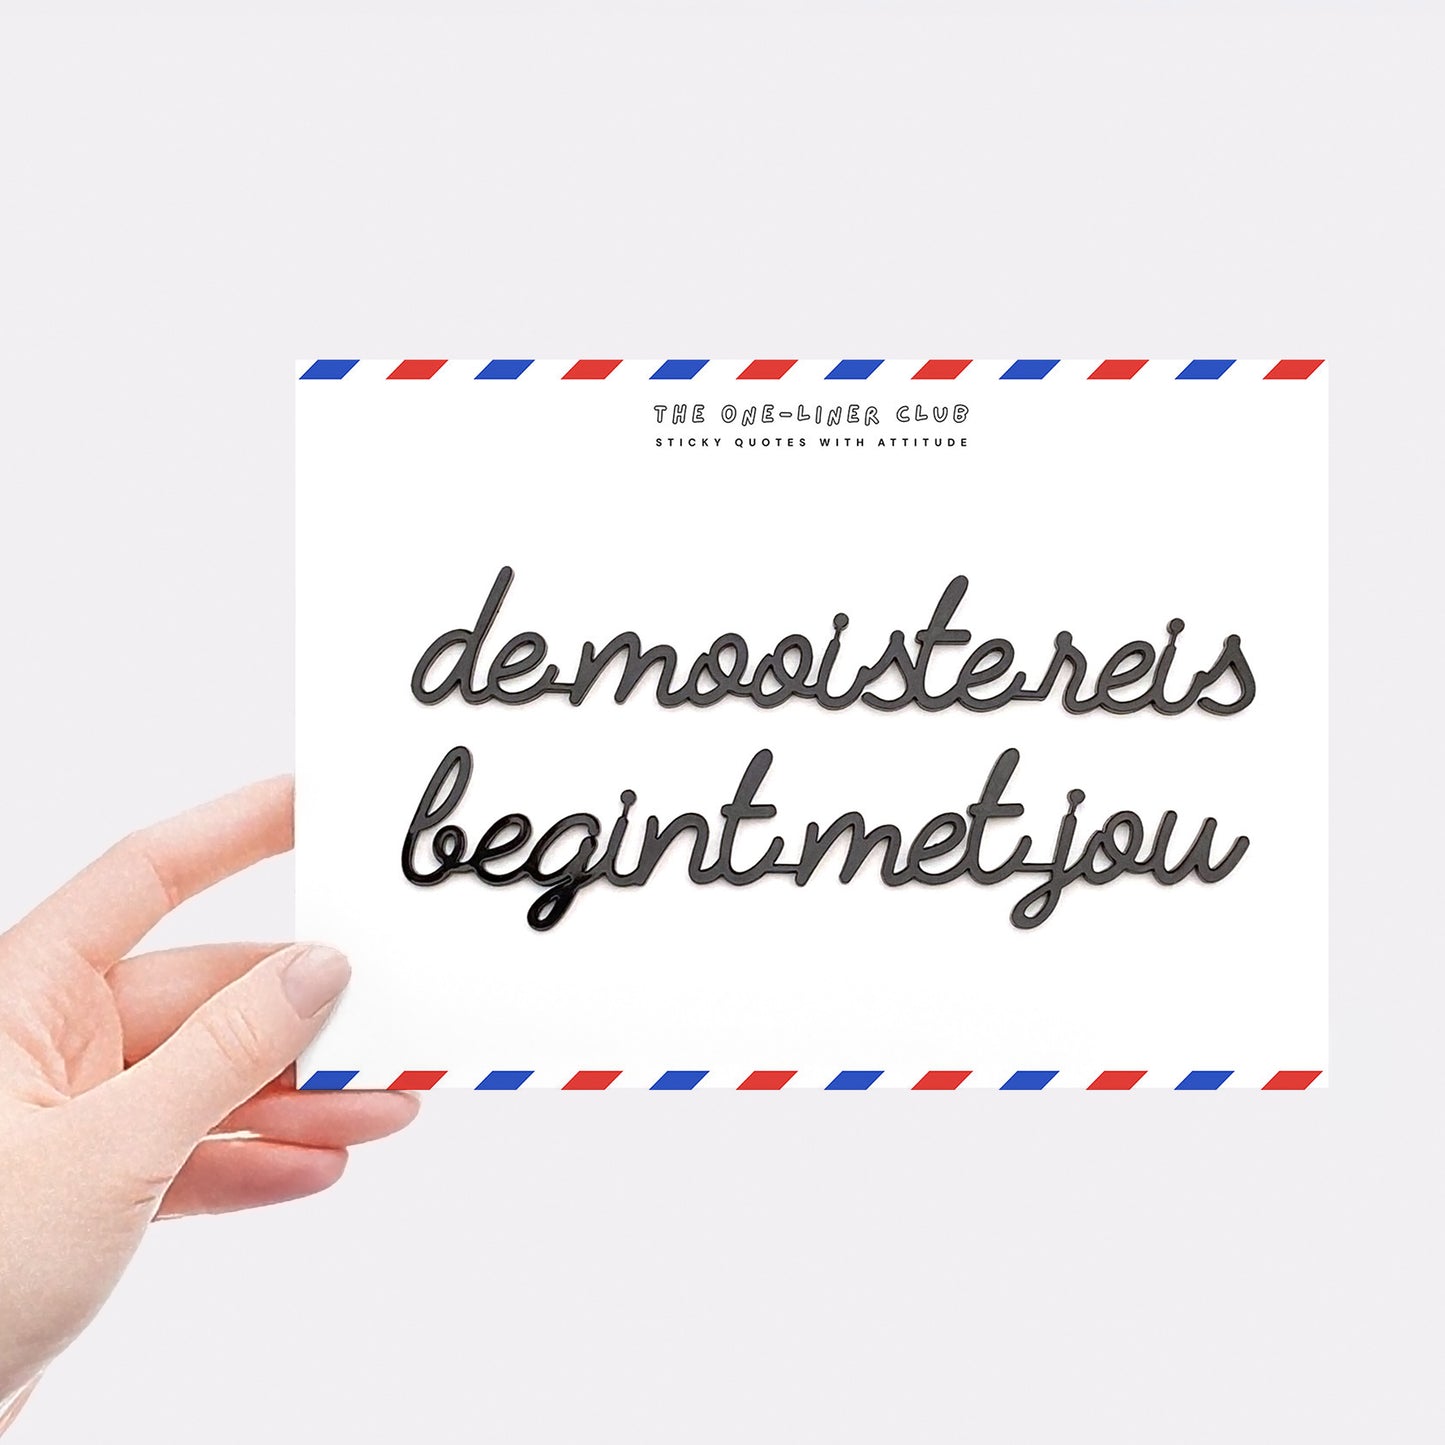 THE ONE-LINER CLUB
STICKY QUOTES WITH ATTITUDE
de mooiste reis
begint met jou